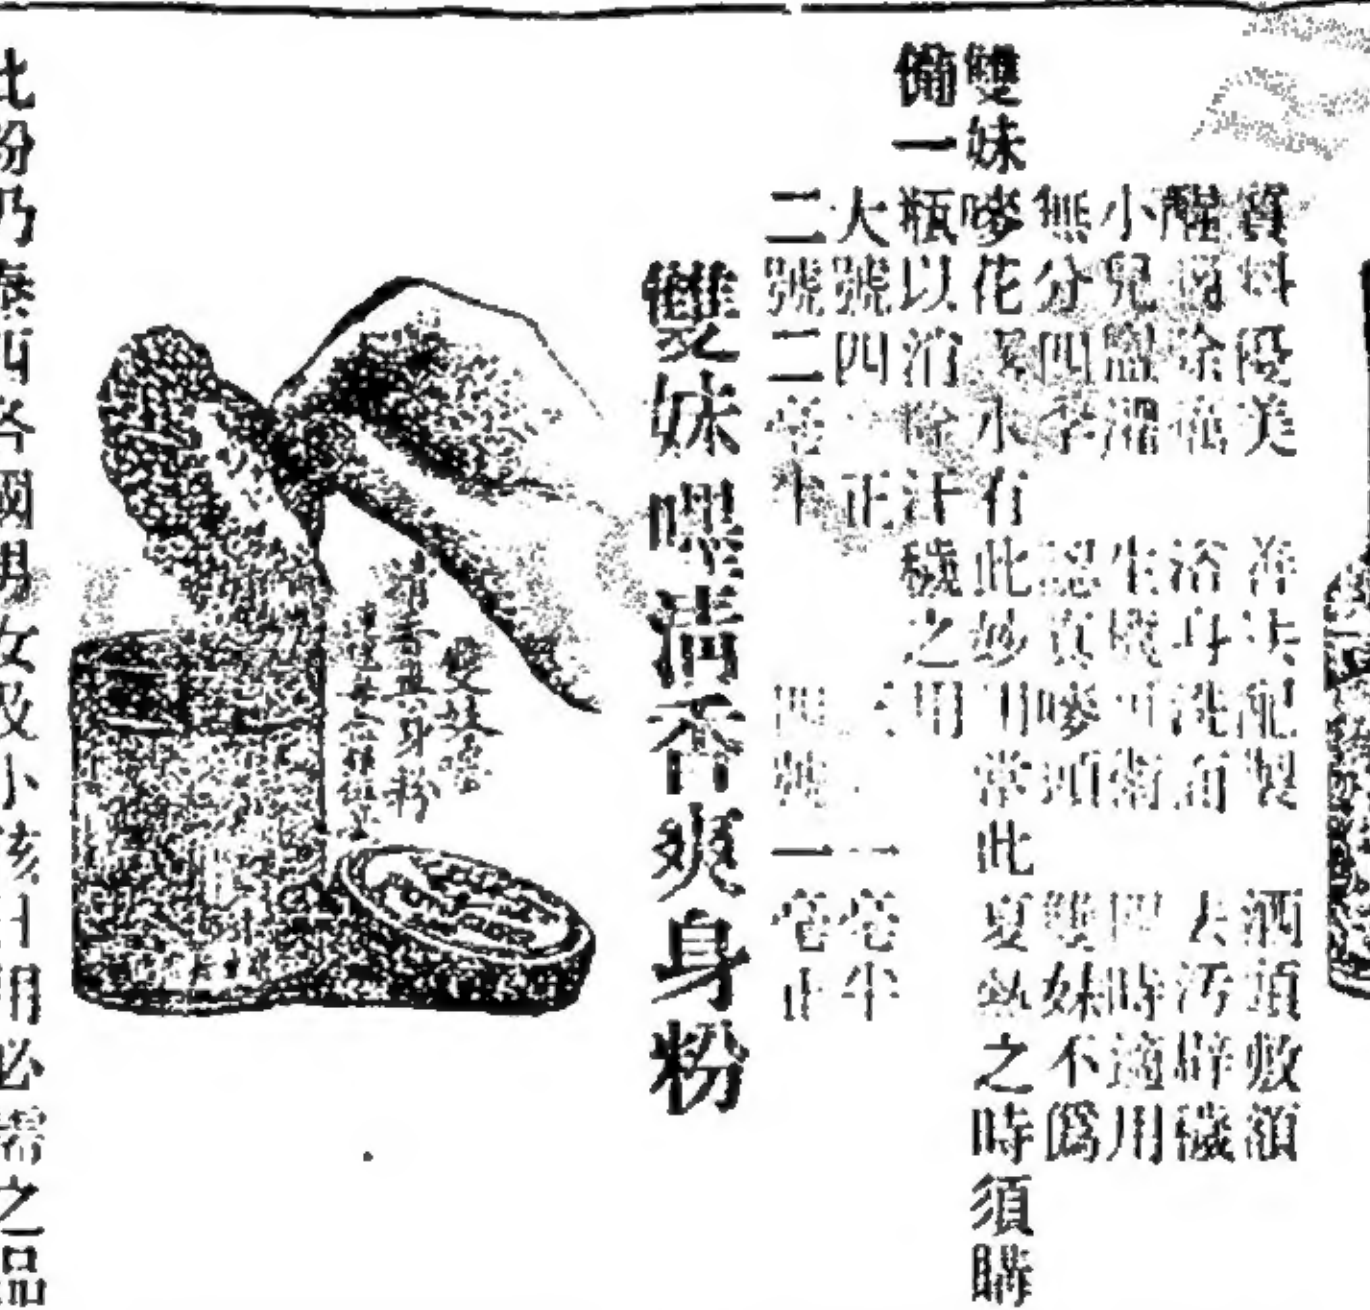 質料優美 善法配製 洒頂敷額
醒腦除瘟 浴身洗面 去污辟穢
小兒盥 生機可衛 四時適用
無分四季 認真嘜頭 雙妹不僞
雙妹嘜花露水有此妙用當此夏熱之時須購
備一瓶以消除汗穢之用
大號四 正 一毫半
二號二毫半 四號一毫正
雙妹嘿清香爽身粉
雙妹嘜
爽身粉
此粉乃泰西各國男女及小孩日用必需之品